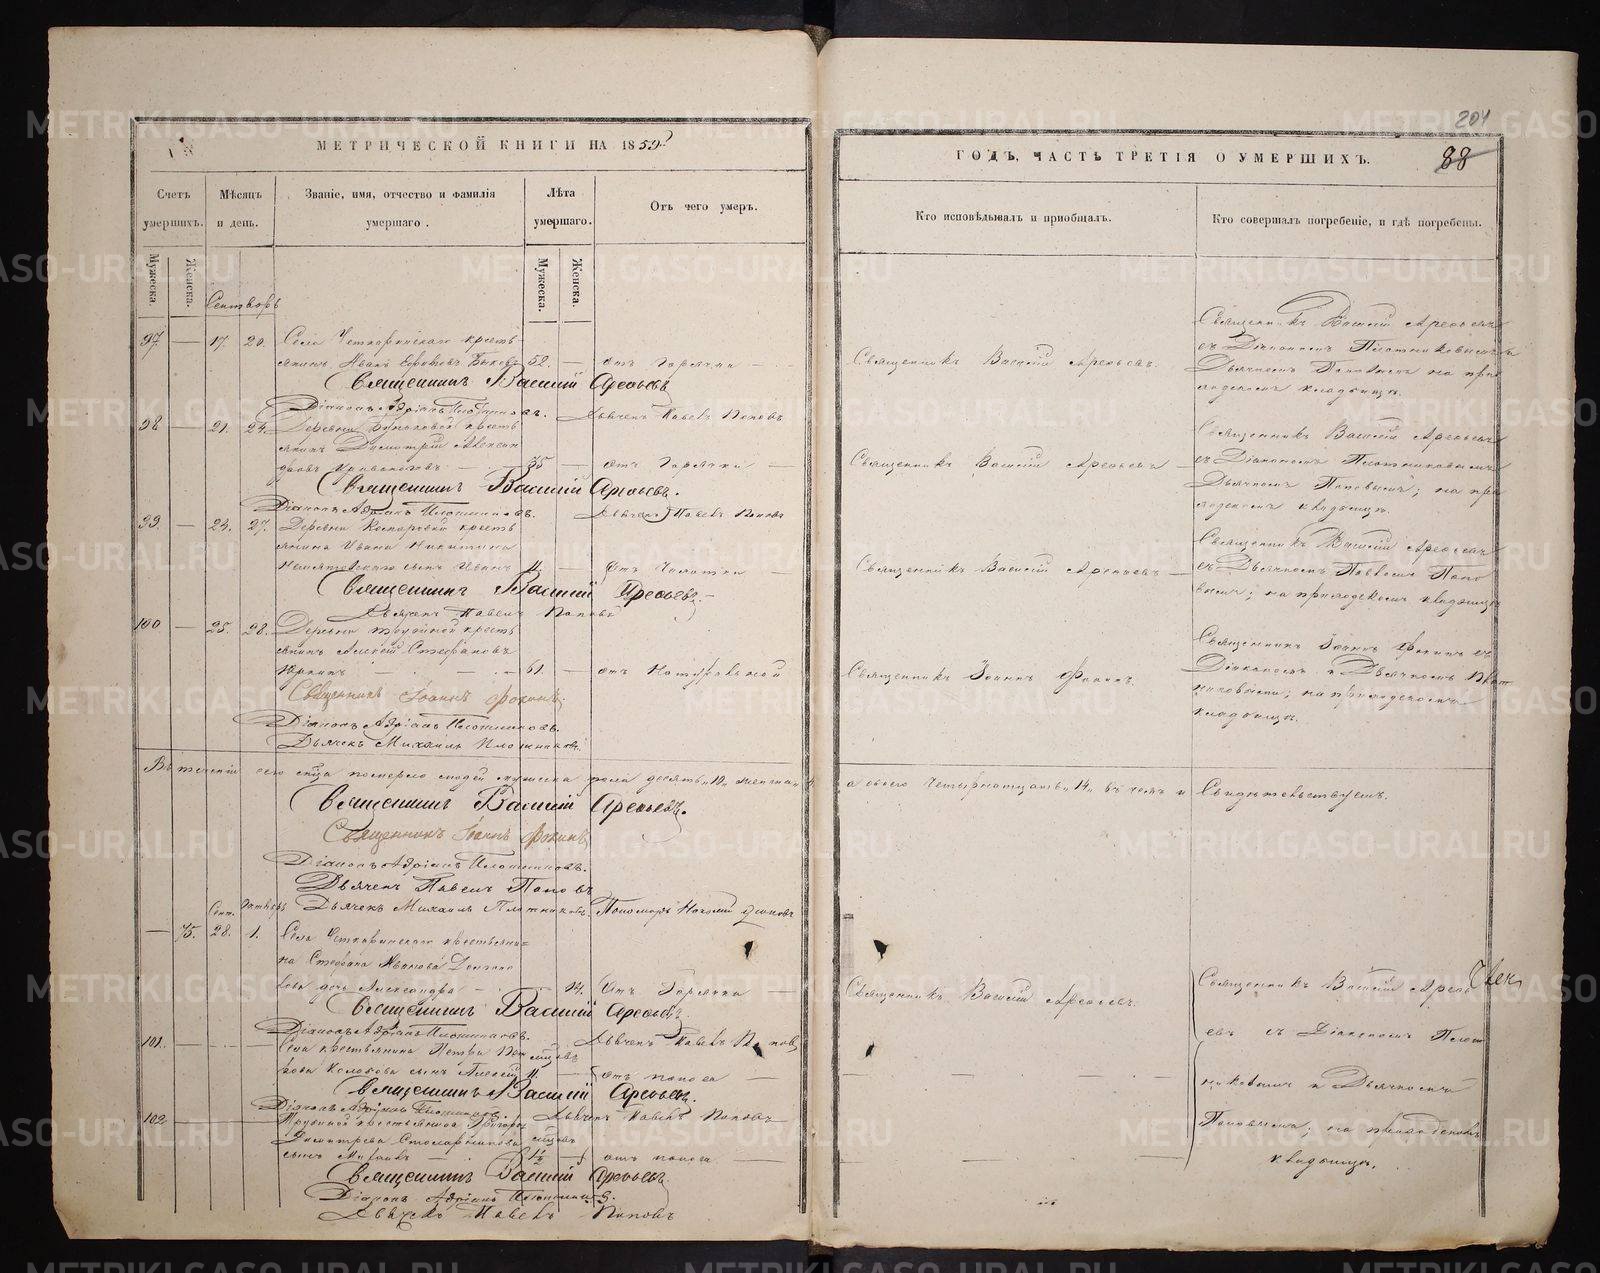 201
88
МЕТРИЧЕСКОЙ КНИГИ НА 1859
ГОДЪ, ЧАСТЬ ТРЕТІЯ О УМЕРШИХЪ.
Счетъ умершихъ.
Мѣсяцъ и день.
Званіе, имя, отчество и фамилія умершаго.
Лѣта умершаго.
Отъ чего умеръ.
Кто исповѣдывалъ и пріобщалъ.
Кто совершалъ погребеніе, и гдѣ погребены.
Мужеска.
Женска.
Мужеска.
Женска.
Сентябрь
97. — 17. 20. Села Четкаринскаго кресть-
янинъ Иванъ 52. — отъ горячки —
Священникъ Василій Арефьевъ.
Священникъ Василій Арефьевъ
съ Діакономъ Плотниковымъ и
Дьячкомъ Поповымъ на при-
ходскомъ кладбищѣ.
Священникъ Василій Арефьевъ
Діаконъ Адріанъ Плотниковъ. Дьячекъ Павелъ Поповъ
98 — 21. 24. Деревни кресть-
янинъ Димитрій Алексан-
дровъ 35 — отъ горячки —
Священникъ Василій Арефьевъ —
Священникъ Василій Арефьевъ
съ Діакономъ Плотниковымъ
Дьячкомъ Поповымъ; на при-
ходскомъ кладбищѣ.
Священникъ Василій Арефьевъ.
Діаконъ Адріанъ Плотниковъ. Дьячекъ Павелъ Поповъ
99 — 24. 27. Деревни кресть-
янина Ивана Никитина
сынъ Иванъ
Священникъ Василій Арефьевъ —
Священникъ Василій Арефьевъ
съ Дьячкомъ Павломъ Попо-
вымъ; на приходскомъ кладбищѣ
Священникъ Василій Арефьевъ.
Дьячекъ Павелъ Поповъ
100 — 25. 28. Деревни кресть-
янинъ Алексій Стефановъ
61. — отъ
Священникъ Іоаннъ Фокинъ.
Священникъ Іоаннъ Фокинъ съ
Діакономъ и Дьячкомъ Плот-
никовыми; на приходскомъ
кладбищѣ.
Священникъ Іоаннъ Фокинъ.
Діаконъ Адріанъ Плотниковъ.
Дьячекъ Михаилъ Плотниковъ.
Въ теченіи сего мѣсяца померло людей мужеска пола десять „10„ женска „4
а обоего четырнадцать „14„ въ чемъ и Свидѣтельствуемъ.
Священникъ Василій Арефьевъ.
Священникъ Іоаннъ Фокинъ
Діаконъ Адріанъ Плотниковъ.
Дьячекъ Павелъ Поповъ
Дьячекъ Михаилъ Плотниковъ. Пономарь
Сент. Октябрь
— 75. 28. 1. Села Четкаринскаго крестьяни-
на Стефана Иванова
дочь Александра — 14. Отъ горячки —
Священникъ Василій Арефьевъ.
Священникъ Василій Арефь-
евъ съ Діакономъ Плот-
никовымъ и Дьячкомъ
Поповымъ; на приходскомъ
кладбищѣ.
Священникъ Василій Арефьевъ.
Діаконъ Адріанъ Плотниковъ. Дьячекъ Павелъ Поповъ
101. — Села крестьянина Петра
сынъ Алексій — отъ поноса —
Священникъ Василій Арефьевъ.
Діаконъ Адріанъ Плотниковъ. Дьячекъ Павелъ Поповъ
102 — крестьянина Григорія
Димитріева
сынъ Михаилъ — 1½ — отъ поноса —
Священникъ Василій Арефьевъ.
Діаконъ Адріанъ Плотниковъ.
Дьячекъ Павелъ Поповъ
METRIKI.GASO-URAL.RU